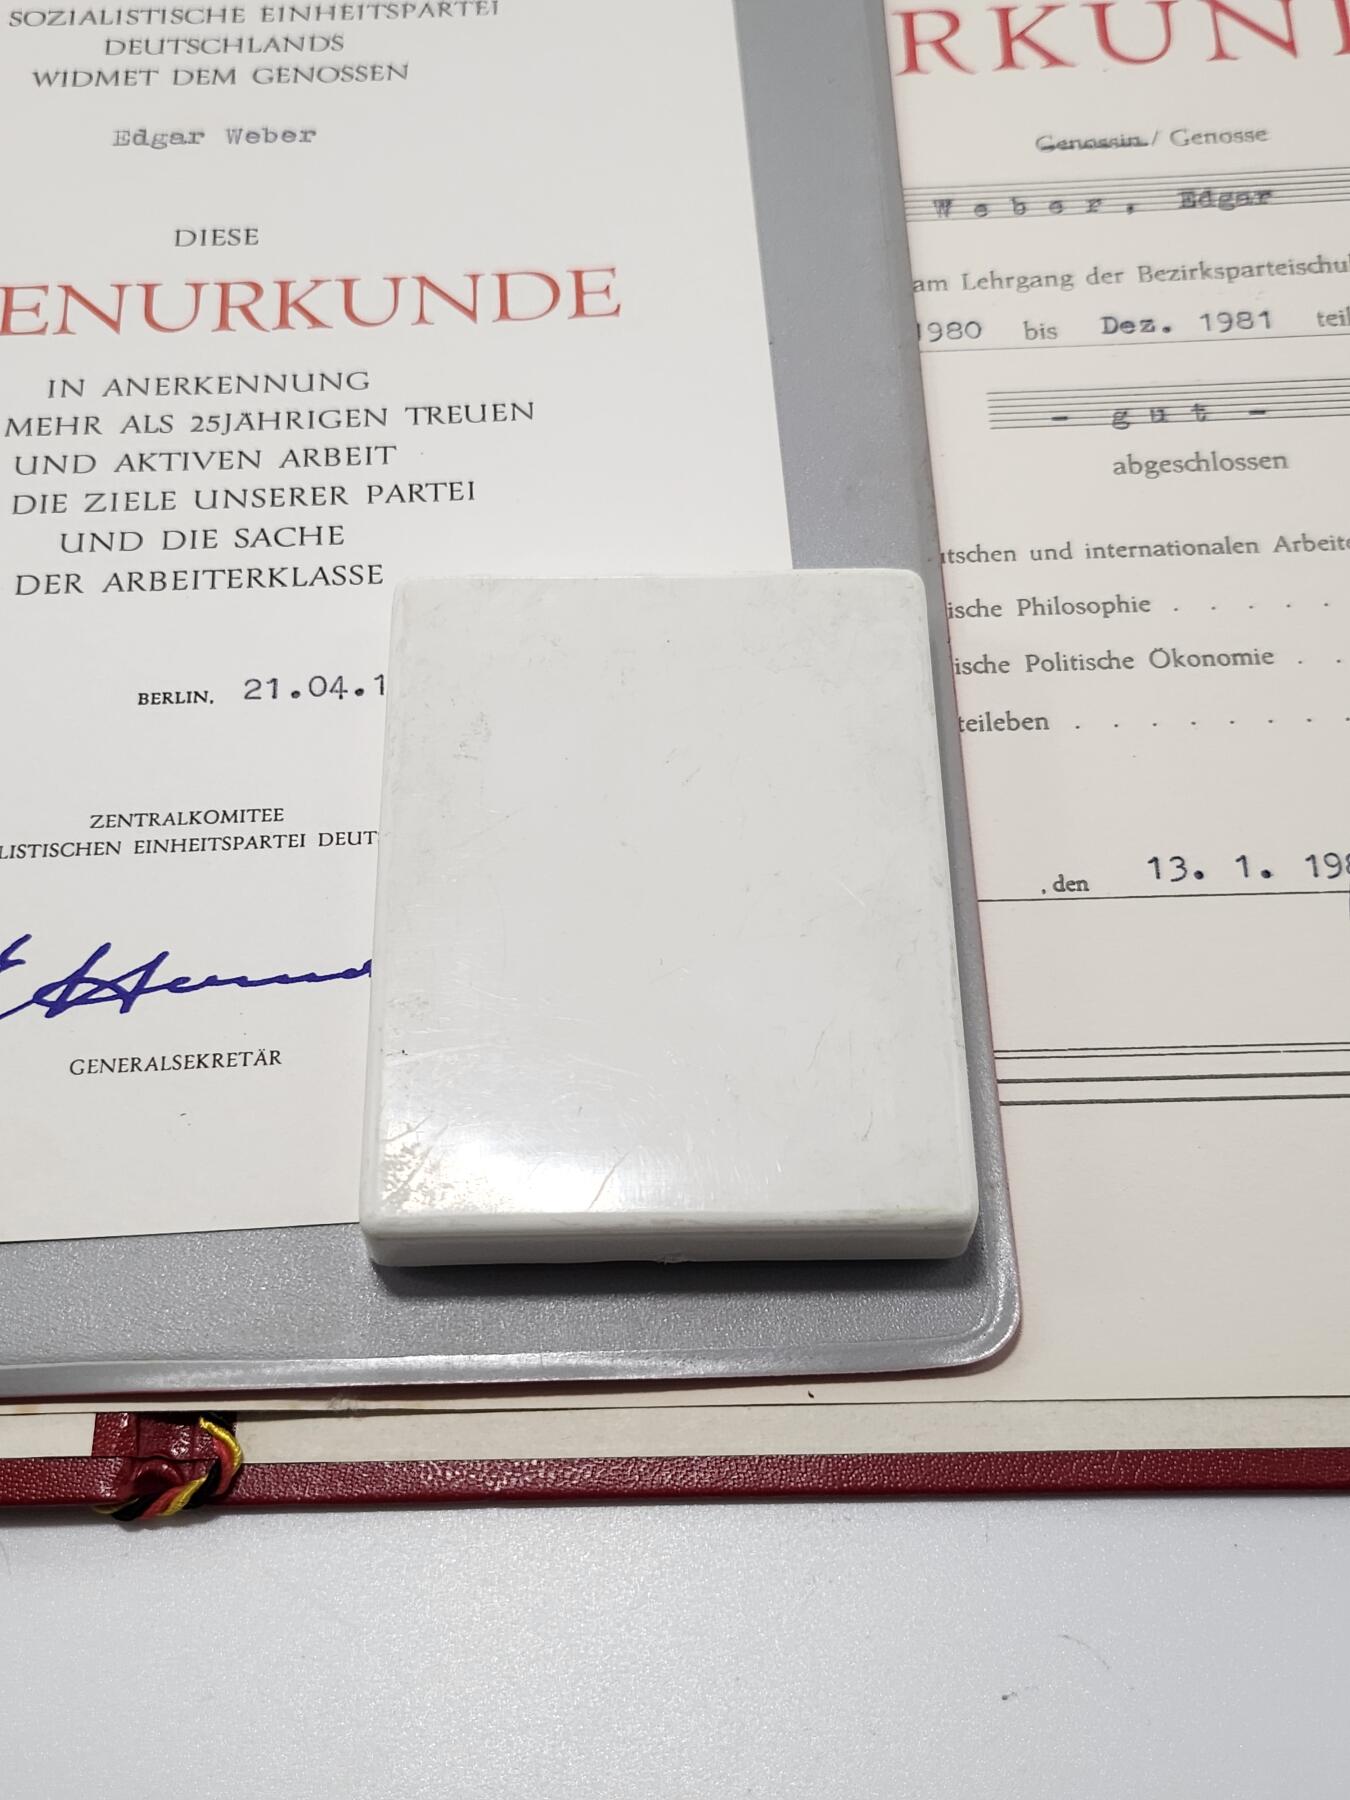 SOZIALISTISCHE EINHEITSPARTEI
DEUTSCHLANDS
WIDMET DEM GENOSSEN
Edgar Weber
DIESE
ENURKUNDE
IN ANERKENNUNG
MEHR ALS 25JÄHRIGEN TREUEN
UND AKTIVEN ARBEIT
DIE ZIELE UNSERER PARTEI
UND DIE SACHE
DER ARBEITERKLASSE
BERLIN, 21.04.1
ZENTRALKOMITEE
LISTISCHEN EINHEITSPARTEI DEUT
GENERALSEKRETÄR
RKUN
Genossin / Genosse
Weber, Edgar
am Lehrgang der Bezirksparteischul
1980 bis Dez. 1981 teil
- gut -
abgeschlossen
tschen und internationalen Arbeite
ische Philosophie . . . . .
ische Politische Ökonomie . .
teileben . . . . . . .
, den 13. 1. 198